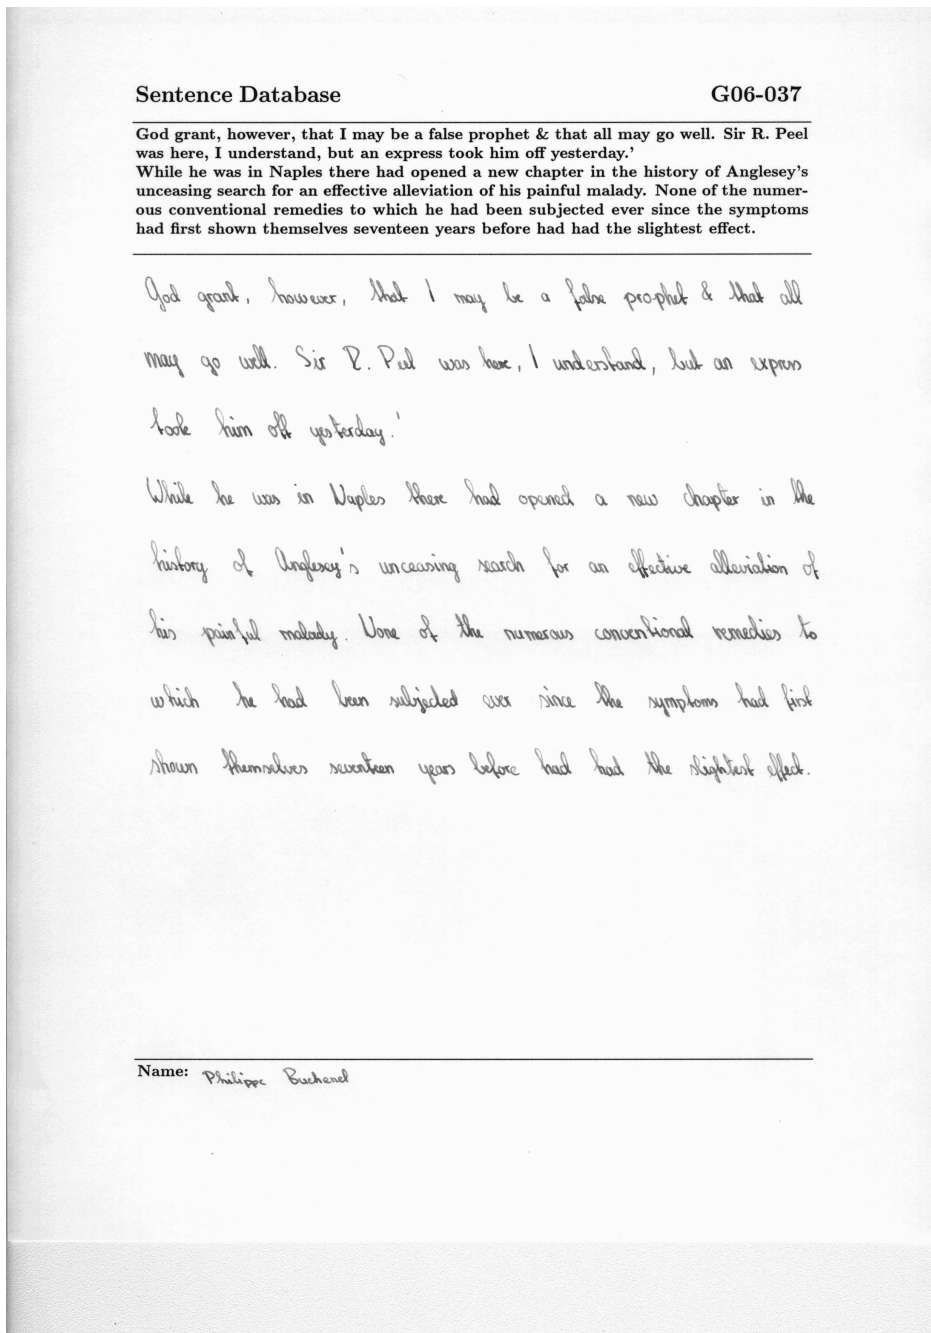 Sentence Database G06-037
God grant, however, that I may be a false prophet & that all may go well. Sir R. Peel
was here, I understand, but an express took him off yesterday.'
While he was in Naples there had opened a new chapter in the history of Anglesey's
unceasing search for an effective alleviation of his painful malady. None of the numer-
ous conventional remedies to which he had been subjected ever since the symptoms
had first shown themselves seventeen years before had had the slightest effect.
God grant, however, that I may be a false prophet & that all
may go well. Sir R. Peel was here, I understand, but an express
took him off yesterday.'
While he was in Naples there had opened a new chapter in the
history of Anglesey's unceasing search for an effective alleviation of
his painful malady. None of the numerous conventional remedies to
which he had been subjected ever since the symptoms had first
shown themselves seventeen years before had had the slightest effect.
Name: Philippe Buchenel